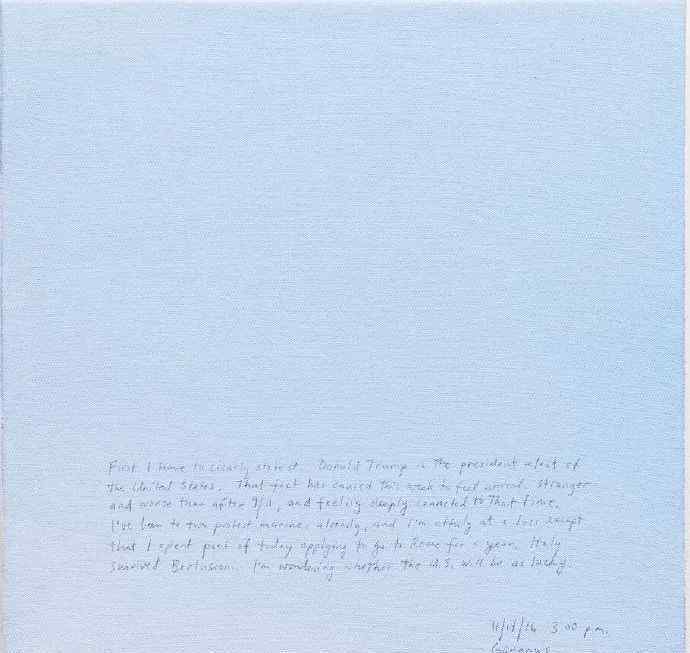 First I have to clearly state it. Donald Trump is the president elect of
the United States. That fact has caused this week to feel unreal. Stranger
and worse than after 9/11, and feeling deeply connected to that time.
I've been to two protest marches already, and I'm at a loss except
that I spent part of today applying to go to Rome for a year. Italy
survived Berlusconi. I'm wondering whether the U.S. will be as lucky.
3:00 p.m.
Gowanus